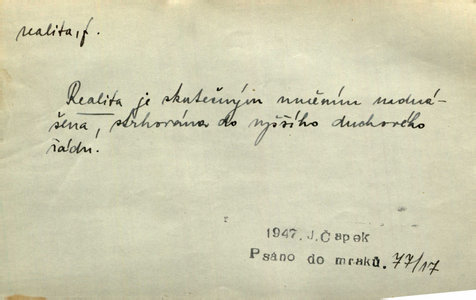 realita, f.
Realita je skutečným uměním nadná-
šena, strhována do vyššího duchového
řádu.
1947. J. Čapek
Psáno do mraků. 77/17